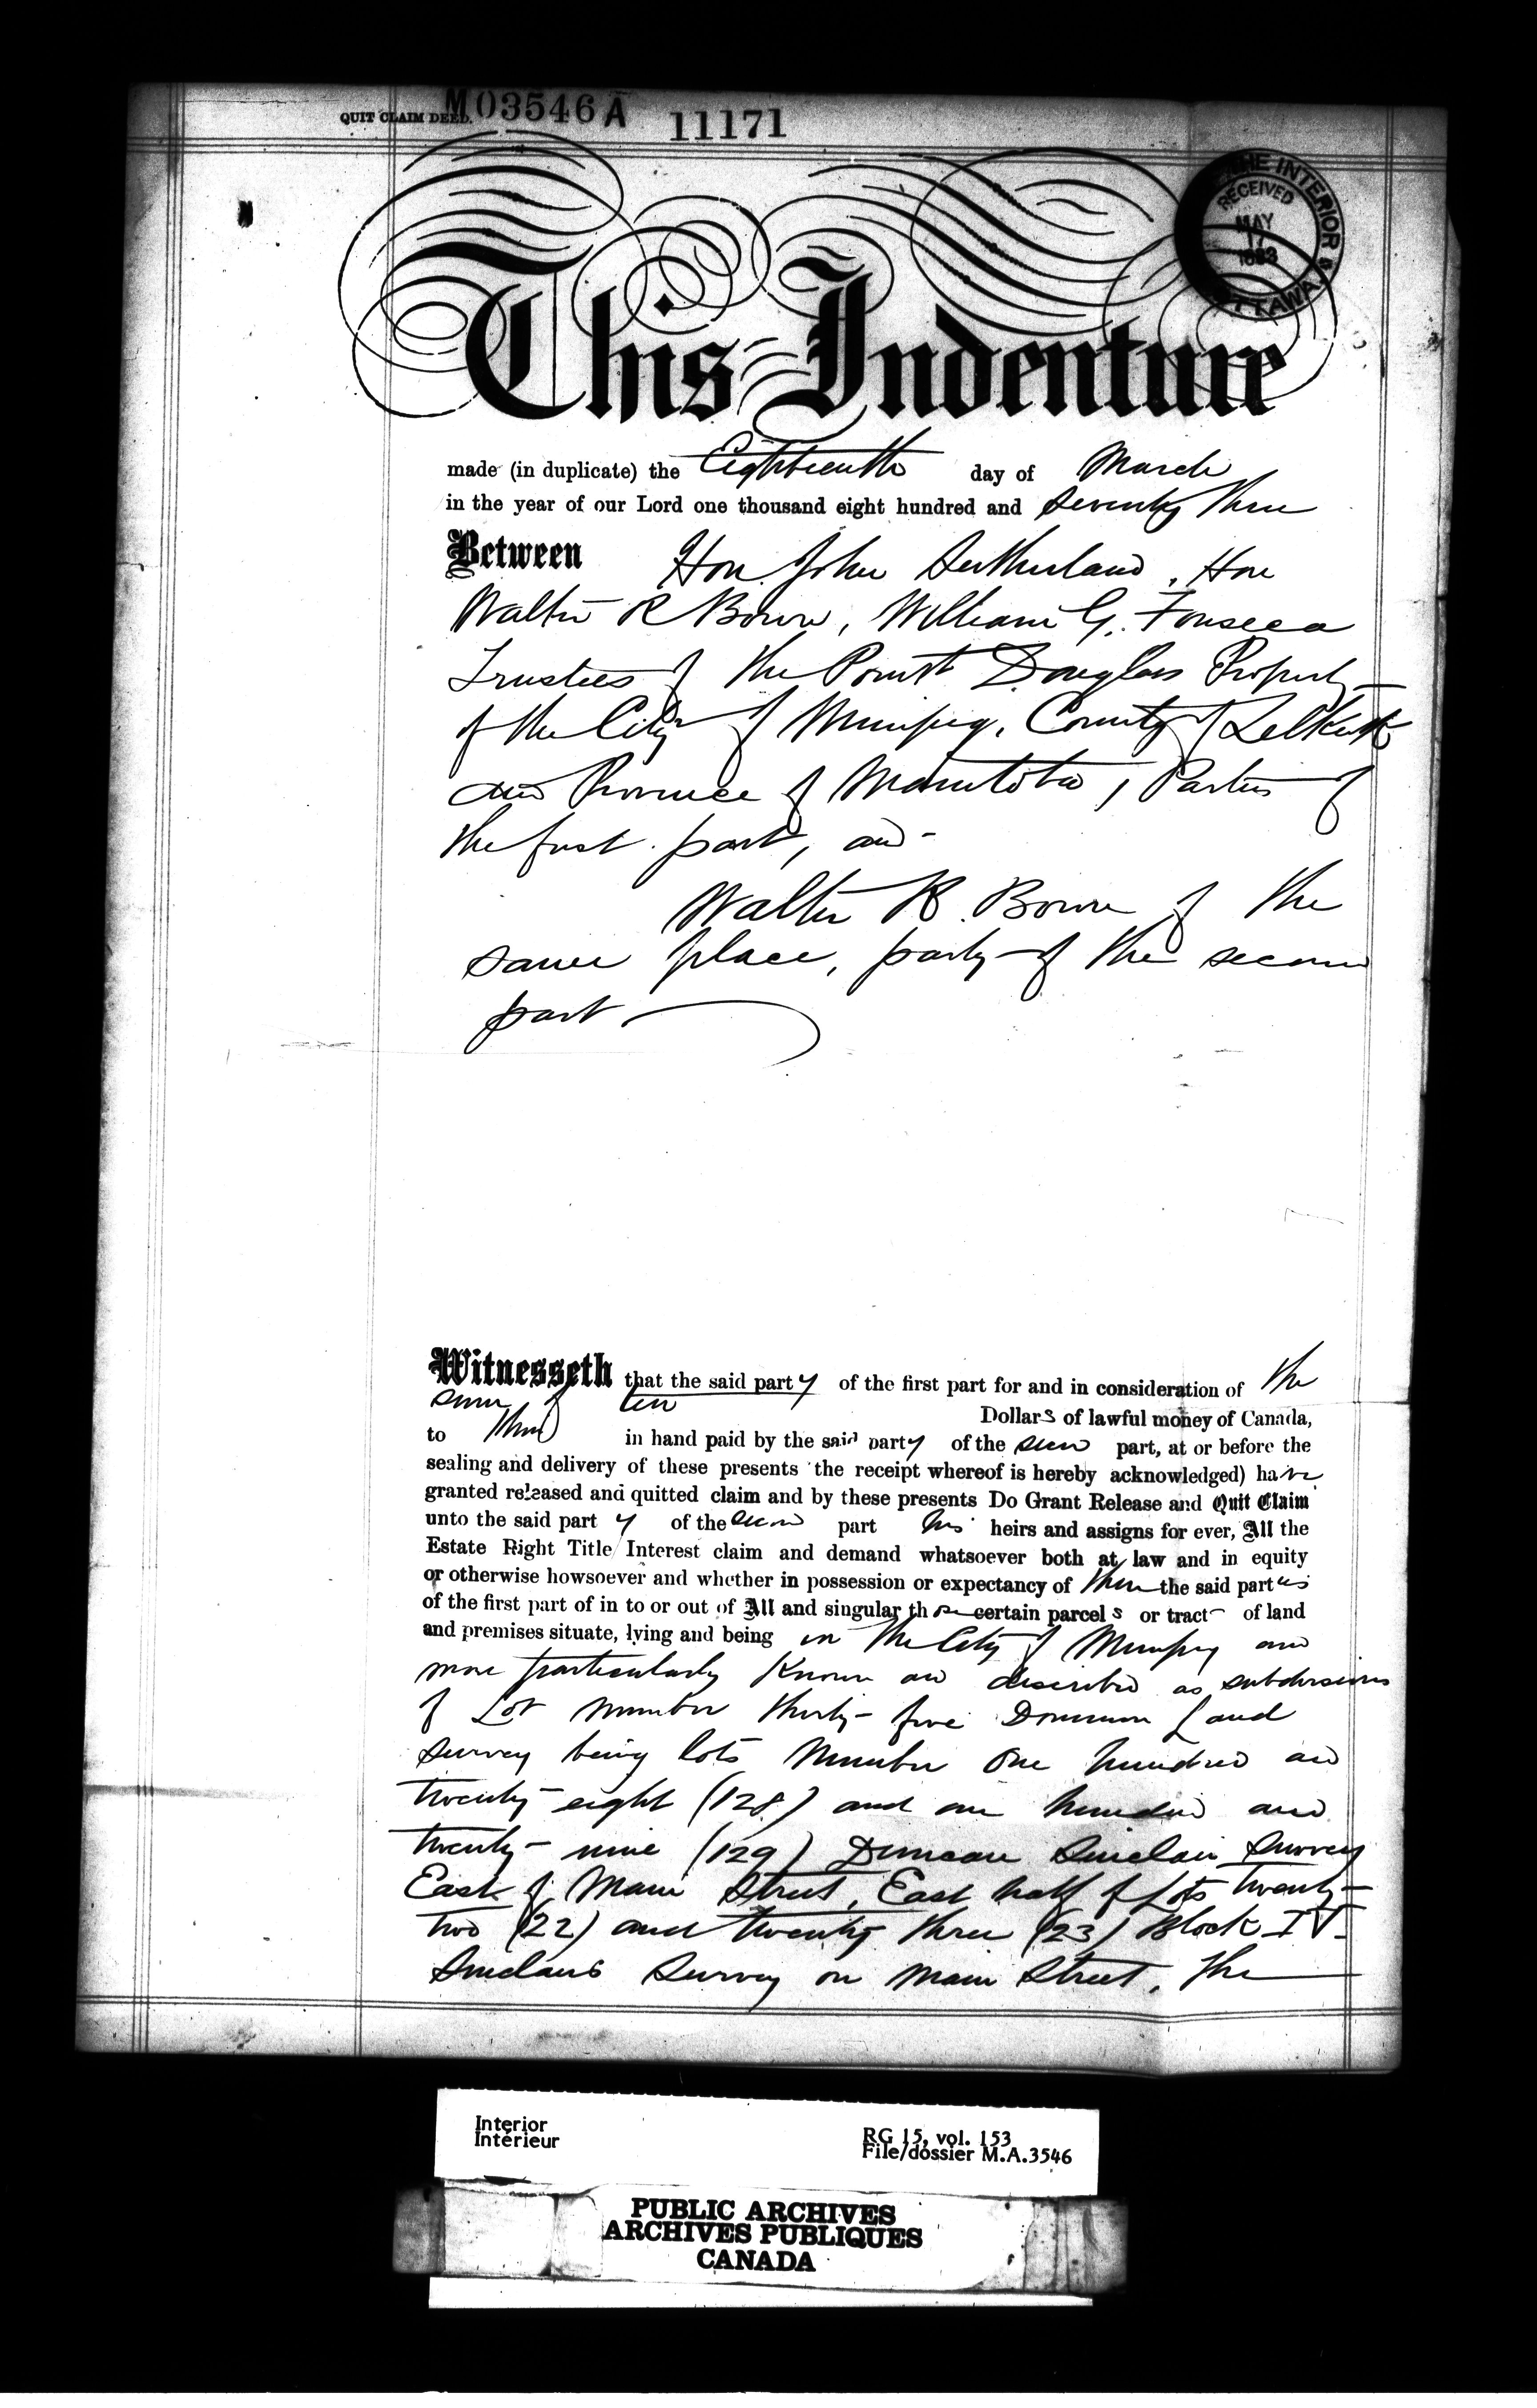 QUIT CLAIM DEED.
M03546A
11171
THE INTERIOR
RECEIVED
MAY
17
1883
OTTAWA
This Indenture
made (in duplicate) the Eighteenth day of March
in the year of our Lord one thousand eight hundred and seventy three
Between Hon. John Sutherland, Hon
Walter R Bown, William G. Fonseca
Trustees of the Point Douglas Property
of the City of Winnipeg, County of Selkirk
and Province of Manitoba, Parties of
the first part, and
Walter R. Bown of the
same place, party of the second
part
Witnesseth that the said party of the first part for and in consideration of the
sum of ten
Dollars of lawful money of Canada,
to them in hand paid by the said party of the second part, at or before the
sealing and delivery of these presents the receipt whereof is hereby acknowledged) have
granted released and quitted claim and by these presents Do Grant Release and Quit Claim
unto the said party of the second part his heirs and assigns for ever, All the
Estate Right Title Interest claim and demand whatsoever both at law and in equity
or otherwise howsoever and whether in possession or expectancy of them the said parties
of the first part of in to or out of All and singular those certain parcels or tract of land
and premises situate, lying and being in the City of Winnipeg and
more particularly known and described as subdivisions
of Lot number thirty-five Dominion Land
Survey being lots number One hundred and
twenty-eight (128) and one hundred and
twenty-nine (129) Duncan Sinclair Survey
East of Main Street, East half of Lots twenty-
two (22) and twenty three (23) Block IV.
Sinclairs Survey on Main Street, the
Interior
Intérieur
RG 15, vol. 153
File/dossier M.A.3546
PUBLIC ARCHIVES
ARCHIVES PUBLIQUES
CANADA